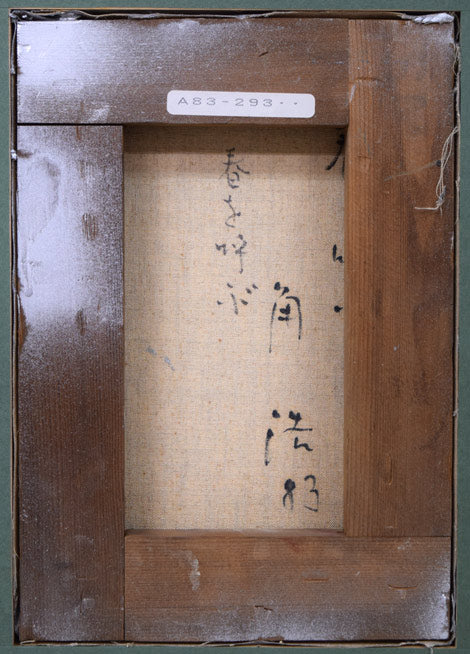 A83-293··
角 浩
春を呼ぶ